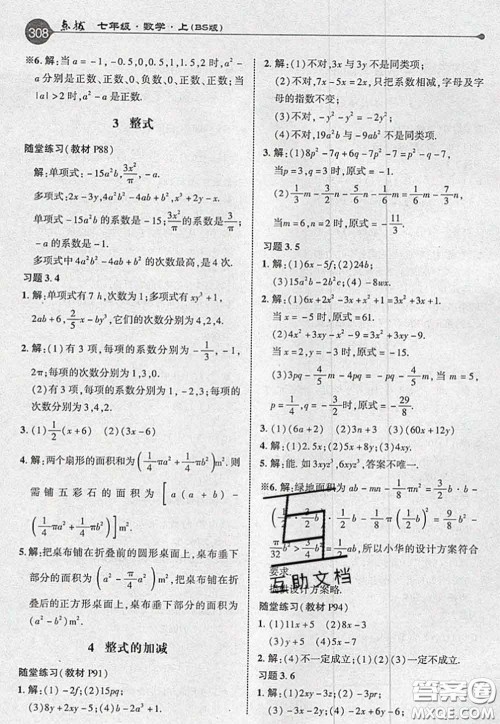 308 点拨 七年级·数学·上(BS版)
※6. 解:a²-a分别是正数、正数、0、负数、0、正数、正数;当
|a|>2时,a²-a是正数.
3 整式
随堂练习(教材P88)
解:单项式:-15a²b,3x²/π,-a.
多项式:2x-3y,4a²b²-4ab+b²,-x²+y²-1.
单项式-15a²b的系数是-15;3x²/π的系数是3/π;
-a的系数是-1.
多项式中4a²b²-4ab+b²的次数最高,是4.
习题3.4
1. 解:单项式有7h,次数为1;多项式有xy³+1,
2ab+6,2/5x-by³,它们的次数分别为4,2,4.
2. 解:(1)有3项,每项的系数分别为-1/3,-1,
2π;每项的次数分别为2,1,1.
(2)有3项,每项的系数分别为1,-2,3;每项的
次数分别为3,4,2.
3. (1)1/2(x+6) (2)(3x-6)
4. 解:两个扇形的面积和为(1/4πa²+1/4πb²)m²,则
需铺五彩石的面积为[a(a+b)-
(1/4πa²+1/4πb²)]m².
5. 解:把桌布铺在折叠前的圆形桌面上,桌布垂下
部分的面积为(a²-π/4a²)m²;把桌布铺在折
叠后的正方形桌面上,桌布垂下部分的面积为
(a²-b²)m².
4 整式的加减
随堂练习(教材P91)
1. 解:(1)-2f;(2)15pq;
(1)不对,3x与3y不是同类项;
(2)不对,7x-5x=2x,只把系数相减,字母及字
母的指数不变;
(3)不对,-y²-y²=-2y²;
(4)不对,19a²b与-9ab²不是同类项.
3. 解:(1)8p²-7q+6q-7p²-7=p²-q-7,
当p=3,q=3时,原式=-1.
(2)1/3m-3/2n-5/6n-1/6m=1/6m-7/3n,
当m=6,n=2时,原式=-11/3.
习题3.5
1. 解:(1)6x-5f;(2)24b;
(3)15a²b+2c;(4)-8wx.
2. 解:(1)6x+2x²-3x+x²+1=3x²+3x+1,
当x=-5时,原式=61.
(2)4x²+3xy-x²-9=3x²+3xy-9,
当x=2,y=-3时,原式=-15.
p=1/4,q=-3/2时,原式=-29/8.
3. (1)(6a+2) (2)13n (3)2n+3
4. 解:(1)2.5x;(2)5x+8y;(3)4x-y.
5. 解:能. 如3xyz,6xyz,答案不唯一.
所以小华的设计方案符合
要求.
提供设计方案略.
随堂练习(教材P94)
1. (1)11x+5 (2)8x-3
(3)y+5 (4)5x+8y
2. 解:(4)不一定成立;(1)(2)(3)一定不成立.
习题3.6
1. 解:(1)3xy-2y²;(2)-4a+3b;
互助文档
答案圈
MXQE.COM